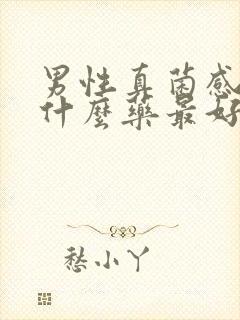 男性真菌感
什麼藥最好
愁小丫